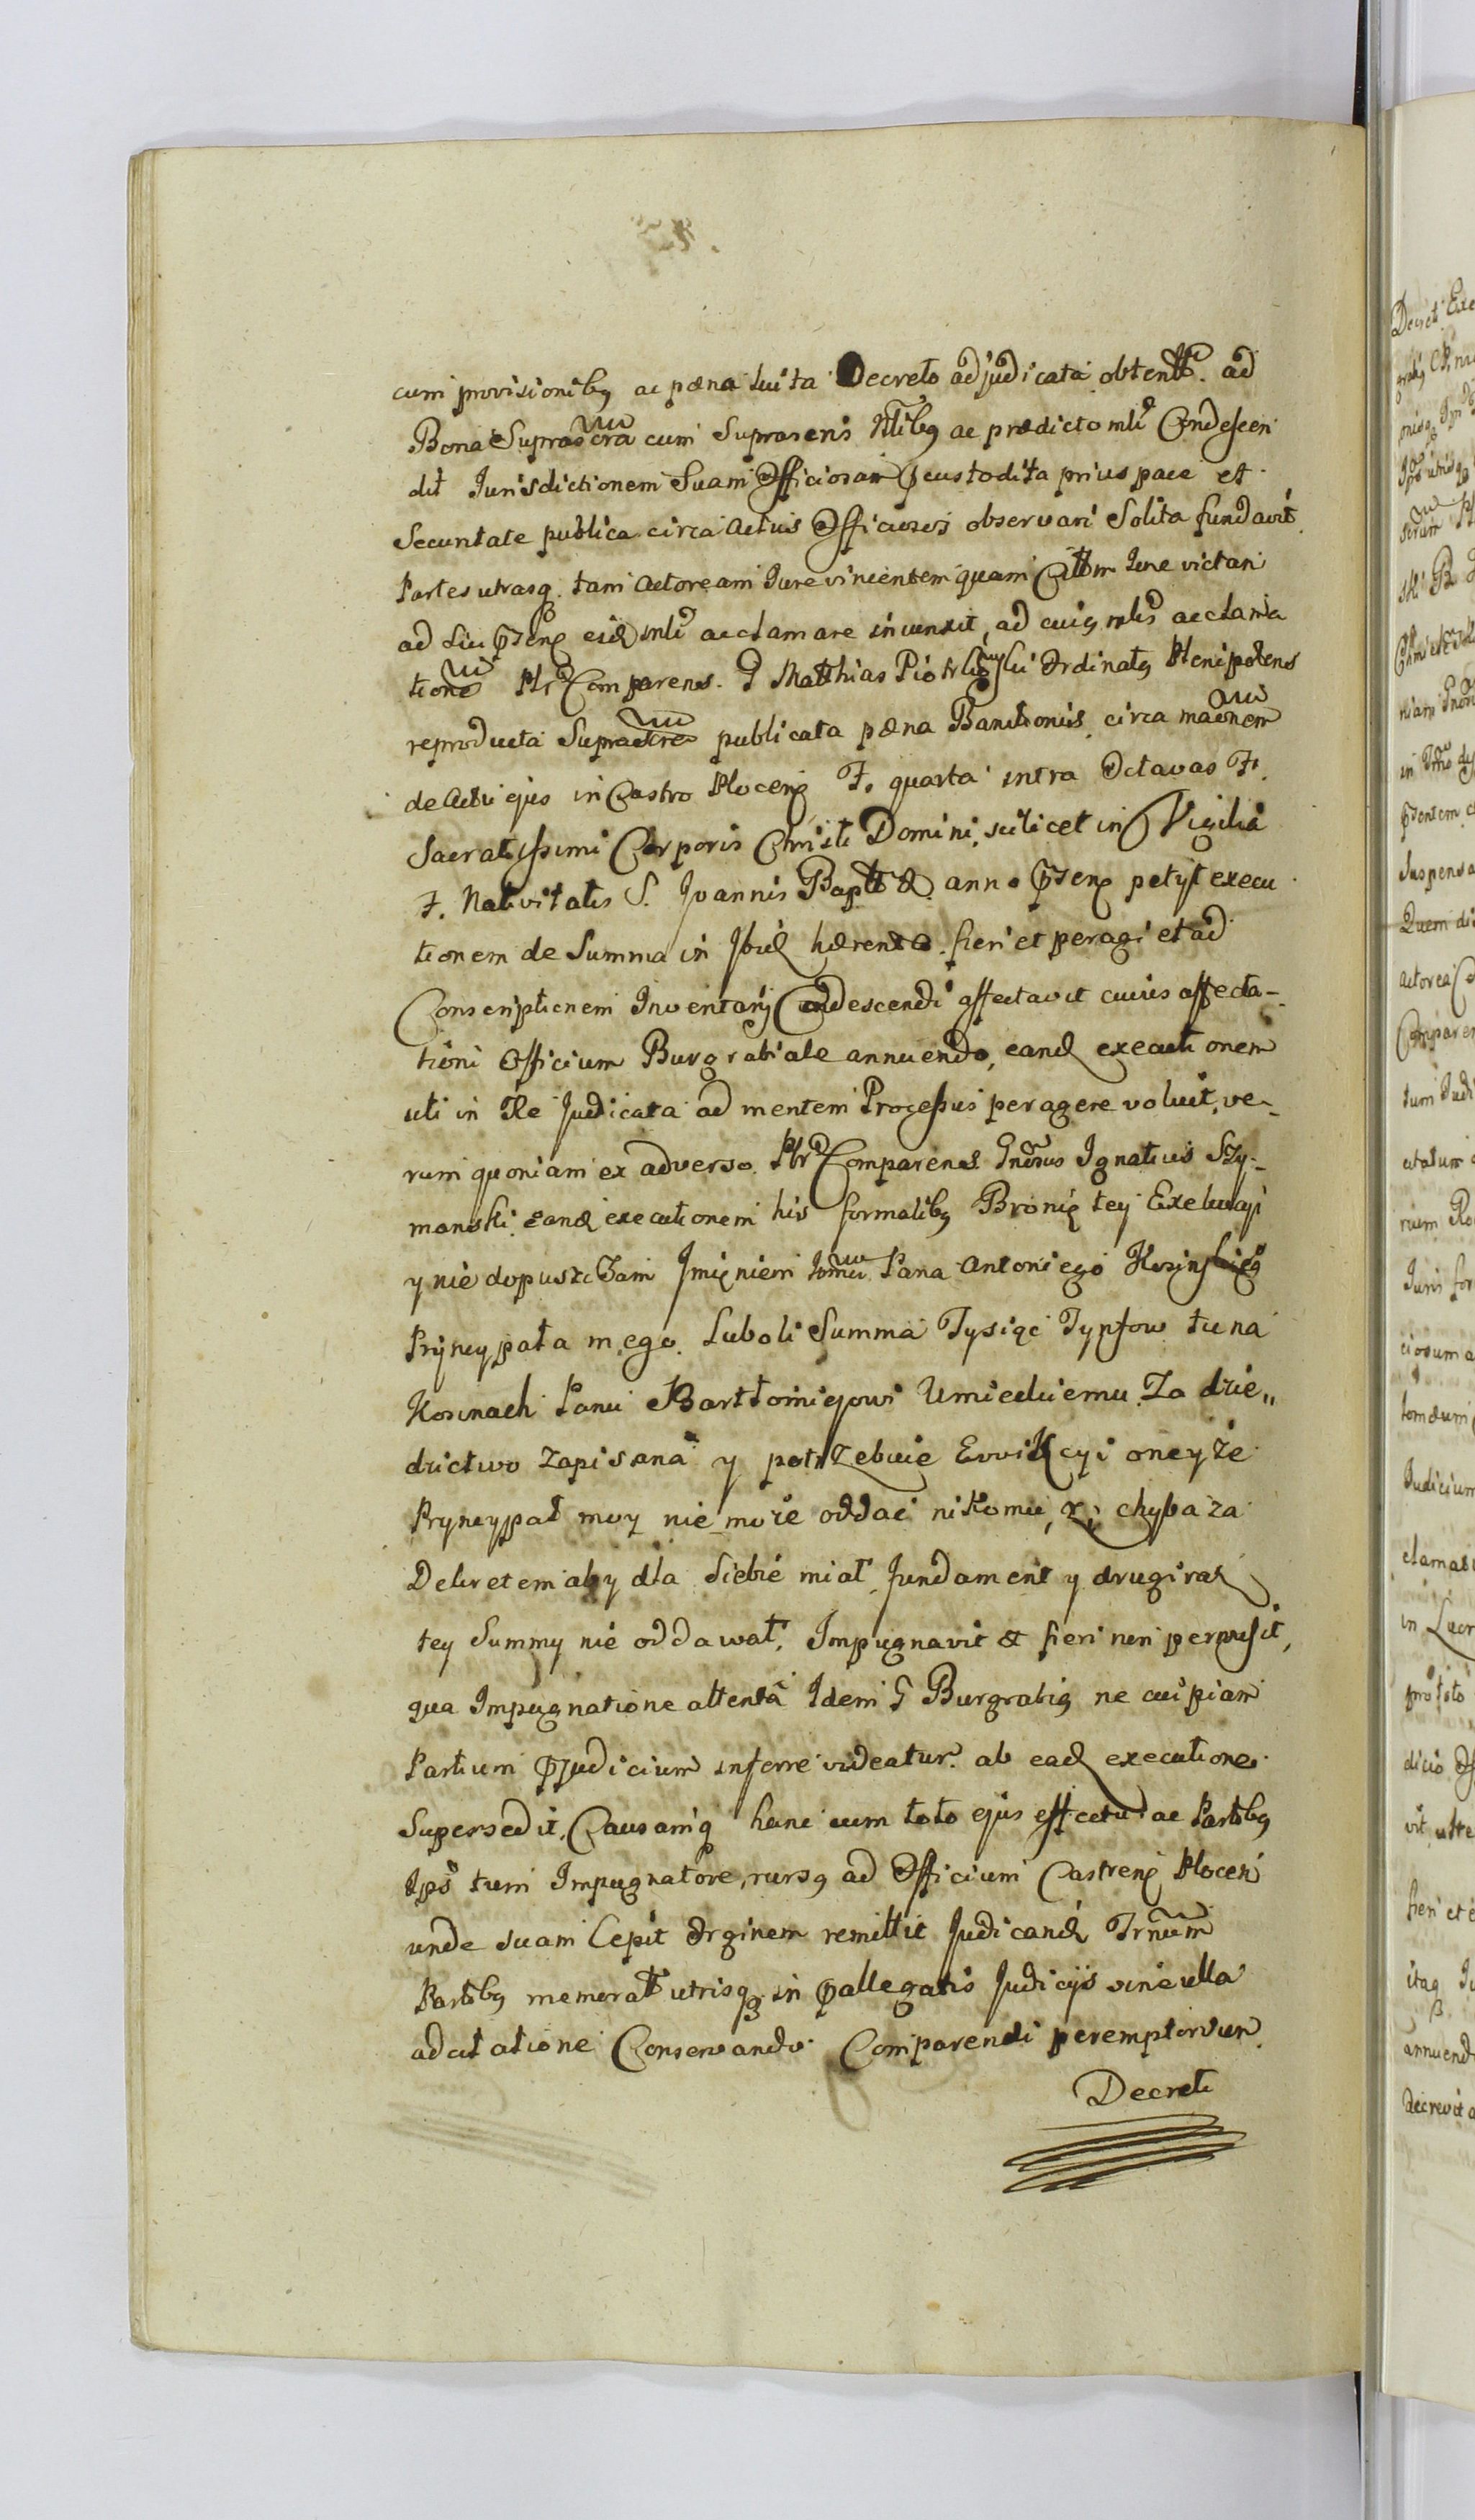 cum provisionibg ac pæna luita Decreto adjudicata obtentt. ad
Bona Suprascra cum Suprascris Nlibg ac prædicto mli Condescen
dit Jurisdictionem Suam Officiosam custodita prius pace et
Securitate publica circa actus Officiosos observari Solita fundavit
Partes utrasq. tam actoream Jure vincentem quam Citt̃m Jure victam
ad sui pñsens eid mli acclamare iniunxit, ad cuig mlis acclama
tione Plr Comparens G Matthias Piotrkoski Ordinatg Plenipotens
reproducta Suprascre publicata pæna Banitionis circa maonem
de Actu ejus in Castro Plocens F. quarta intra Octavas F.
Sacratissimi Corporis Christi Domini, scilicet in Vigilia
F. Nativitatis S. Joannis Baptt & anno pñsens petyt execu
tionem de Summa in Ibid hærente fieri et peragi et ad
Conscriptionem Inventarij Condescendi affectavit cuius affecta-
tioni Officium Burgrabiale annuendo, eand executionem
uti in Re Judicata ad mentem Processus peragere voluit, ve-
rum quoniam ex adverso Plr Comparens Gnosus Ignatius Szy-
manski eand executionem his formalibg Bronię tey Exekucyi
y nie dopuszczam Imięniem Jomci Pana Antoniego Kosinskiego
Pryncypała mego Luboli Summa Tysiąc Tynfow tu na
Kosinach Panu Bartłomiejowi Umieckiemu Za dzie„
dzictwo zapisana y potrzebuie Ewikcyi oney że
Pryncypał moy nie może oddać nikomu, chyba za
Dekretem aby dla siebie miał fundament y drugi raz
tey Summy nie oddawał, Impugnavit & fieri non permisit,
qua Impugnatione attenta Idem G Burgrabig ne cuipiam
Partium pjudicium inferre videatur ab ead executione
Supersedit, Causamq hanc cum toto ejus effectu ac Partibg
Ipsis tum Impugnatore, rursg ad Officium Castrens Plocen
unde suam Cepit Orginem remittit Judicand Trnum
Partibg memoratt utrisq in pallegatis Judicijs sine ulla
adcitatione Conservando Comparendi peremptorium
Decreti